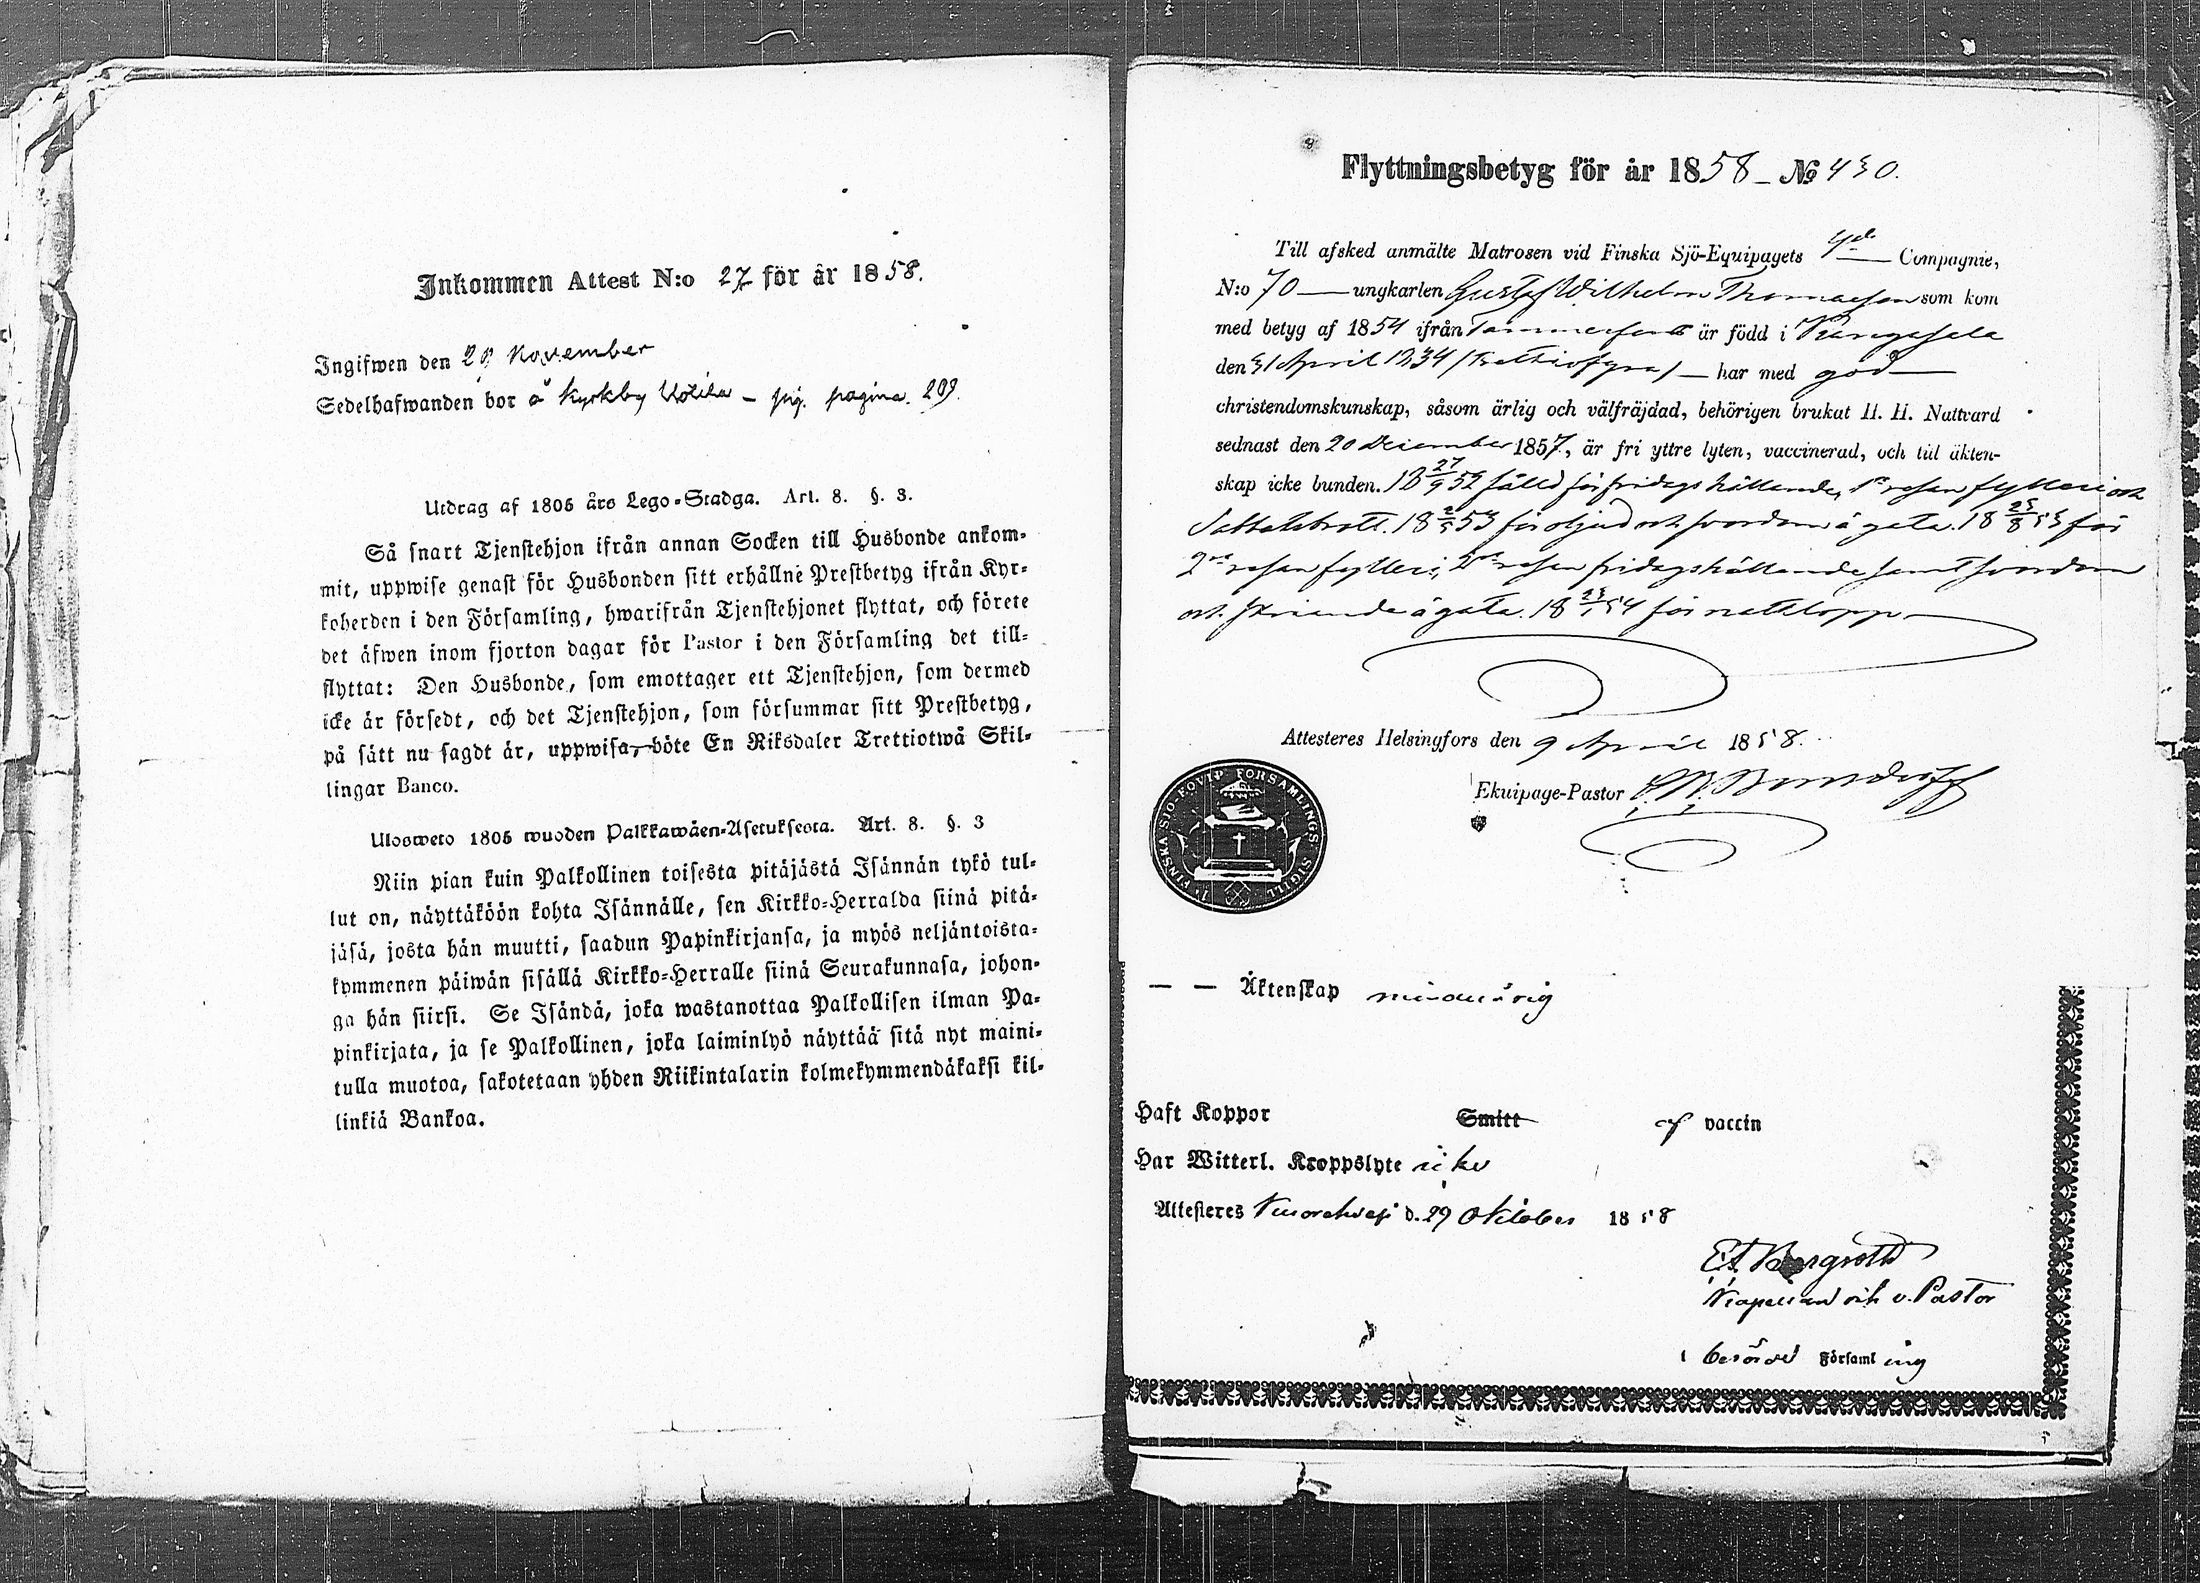 Inkommen Attest N:o 27 för år 1858.
Ingifwen den 20 November
Sedelhafwanden bor å Kyrkby Kotila – pag. pagina. 209.
Utdrag af 1805 års Lego-Stadga. Art. 8. §. 3.
Så snart Tjenstehjon ifrån annan Socken till Husbonde ankom-
mit, uppwise genast för Husbonden sitt erhållne Prestbetyg ifrån Kyr-
koherden i den Församling, hwarifrån Tjenstehjonet flyttat, och förete
det äfwen inom fjorton dagar för Pastor i den Församling det till-
flyttat: Den Husbonde, som emottager ett Tjenstehjon, som dermed
icke är försedt, och det Tjenstehjon, som försummar sitt Prestbetyg,
på sätt nu sagdt är, uppwisa, böte En Riksdaler Trettiotwå Skil-
lingar Banco.
Ulosweto 1805 wuoden Palkkawäen-Asetuksesta. Art. 8. §. 3
Niin pian kuin Palkollinen toisesta pitäjästä Isännän tykö tul-
lut on, näyttäköön kohta Isännälle, sen Kirkko-Herralda siinä pitä-
jäsä, josta hän muutti, saadun Papinkirjansa, ja myös neljäntoista-
kymmenen päiwän sisällä Kirkko-Herralle siinä Seurakunnasa, johon-
ga hän siirsi. Se Isändä, joka wastanottaa Palkollisen ilman Pa-
pinkirjata, ja se Palkollinen, joka laiminlyö näyttää sitä nyt maini-
tulla muotoa, sakotetaan yhden Riikintalarin kolmekymmendäkaksi kil-
linkiä Bankoa.
Flyttningsbetyg för år 1858 – № 430.
Till afsked anmälte Matrosen vid Finska Sjö-Equipagets 4de Compagnie,
N:o 70 — ungkarlen Gustaf Wilhelm Thomasson som kom
med betyg af 1854 ifrån Tammerfors är född i Kangasala
den 31 April 1834 /trettiofyra/ — har med god
christendomskunskap, såsom ärlig och välfräjdad, behörigen brukat H. H. Nattvard
sednast den 20 December 1857, är fri yttre lyten, vaccinerad, och till äkten-
skap icke bunden. 18 27/9 52 fälld för fridagshållande, 1a resan fylleri och
Sabbatsbrott. 18 2/5 53 för oljud och svordom å gata. 18 23/8 53 för
2dra resan fylleri, 2dra resan fridagshållande samt svordom
och skriande å gata. 18 23/1 54 för nattlopp —
Attesteres Helsingfors den 9 April 1858.
Ekuipage-Pastor
FINSKA SJÖ-EQVIP. FÖRSAMLINGS SIGILL
— — Äktenskap minderårig
Haft Koppor Smitt af vaccin
Har Witterl. Kroppslyte icke
Attesteres Kuorehvesi d. 29 Oktober 1858
E A Bergroth
Kapellan och v. Pastor
i berörde Församling